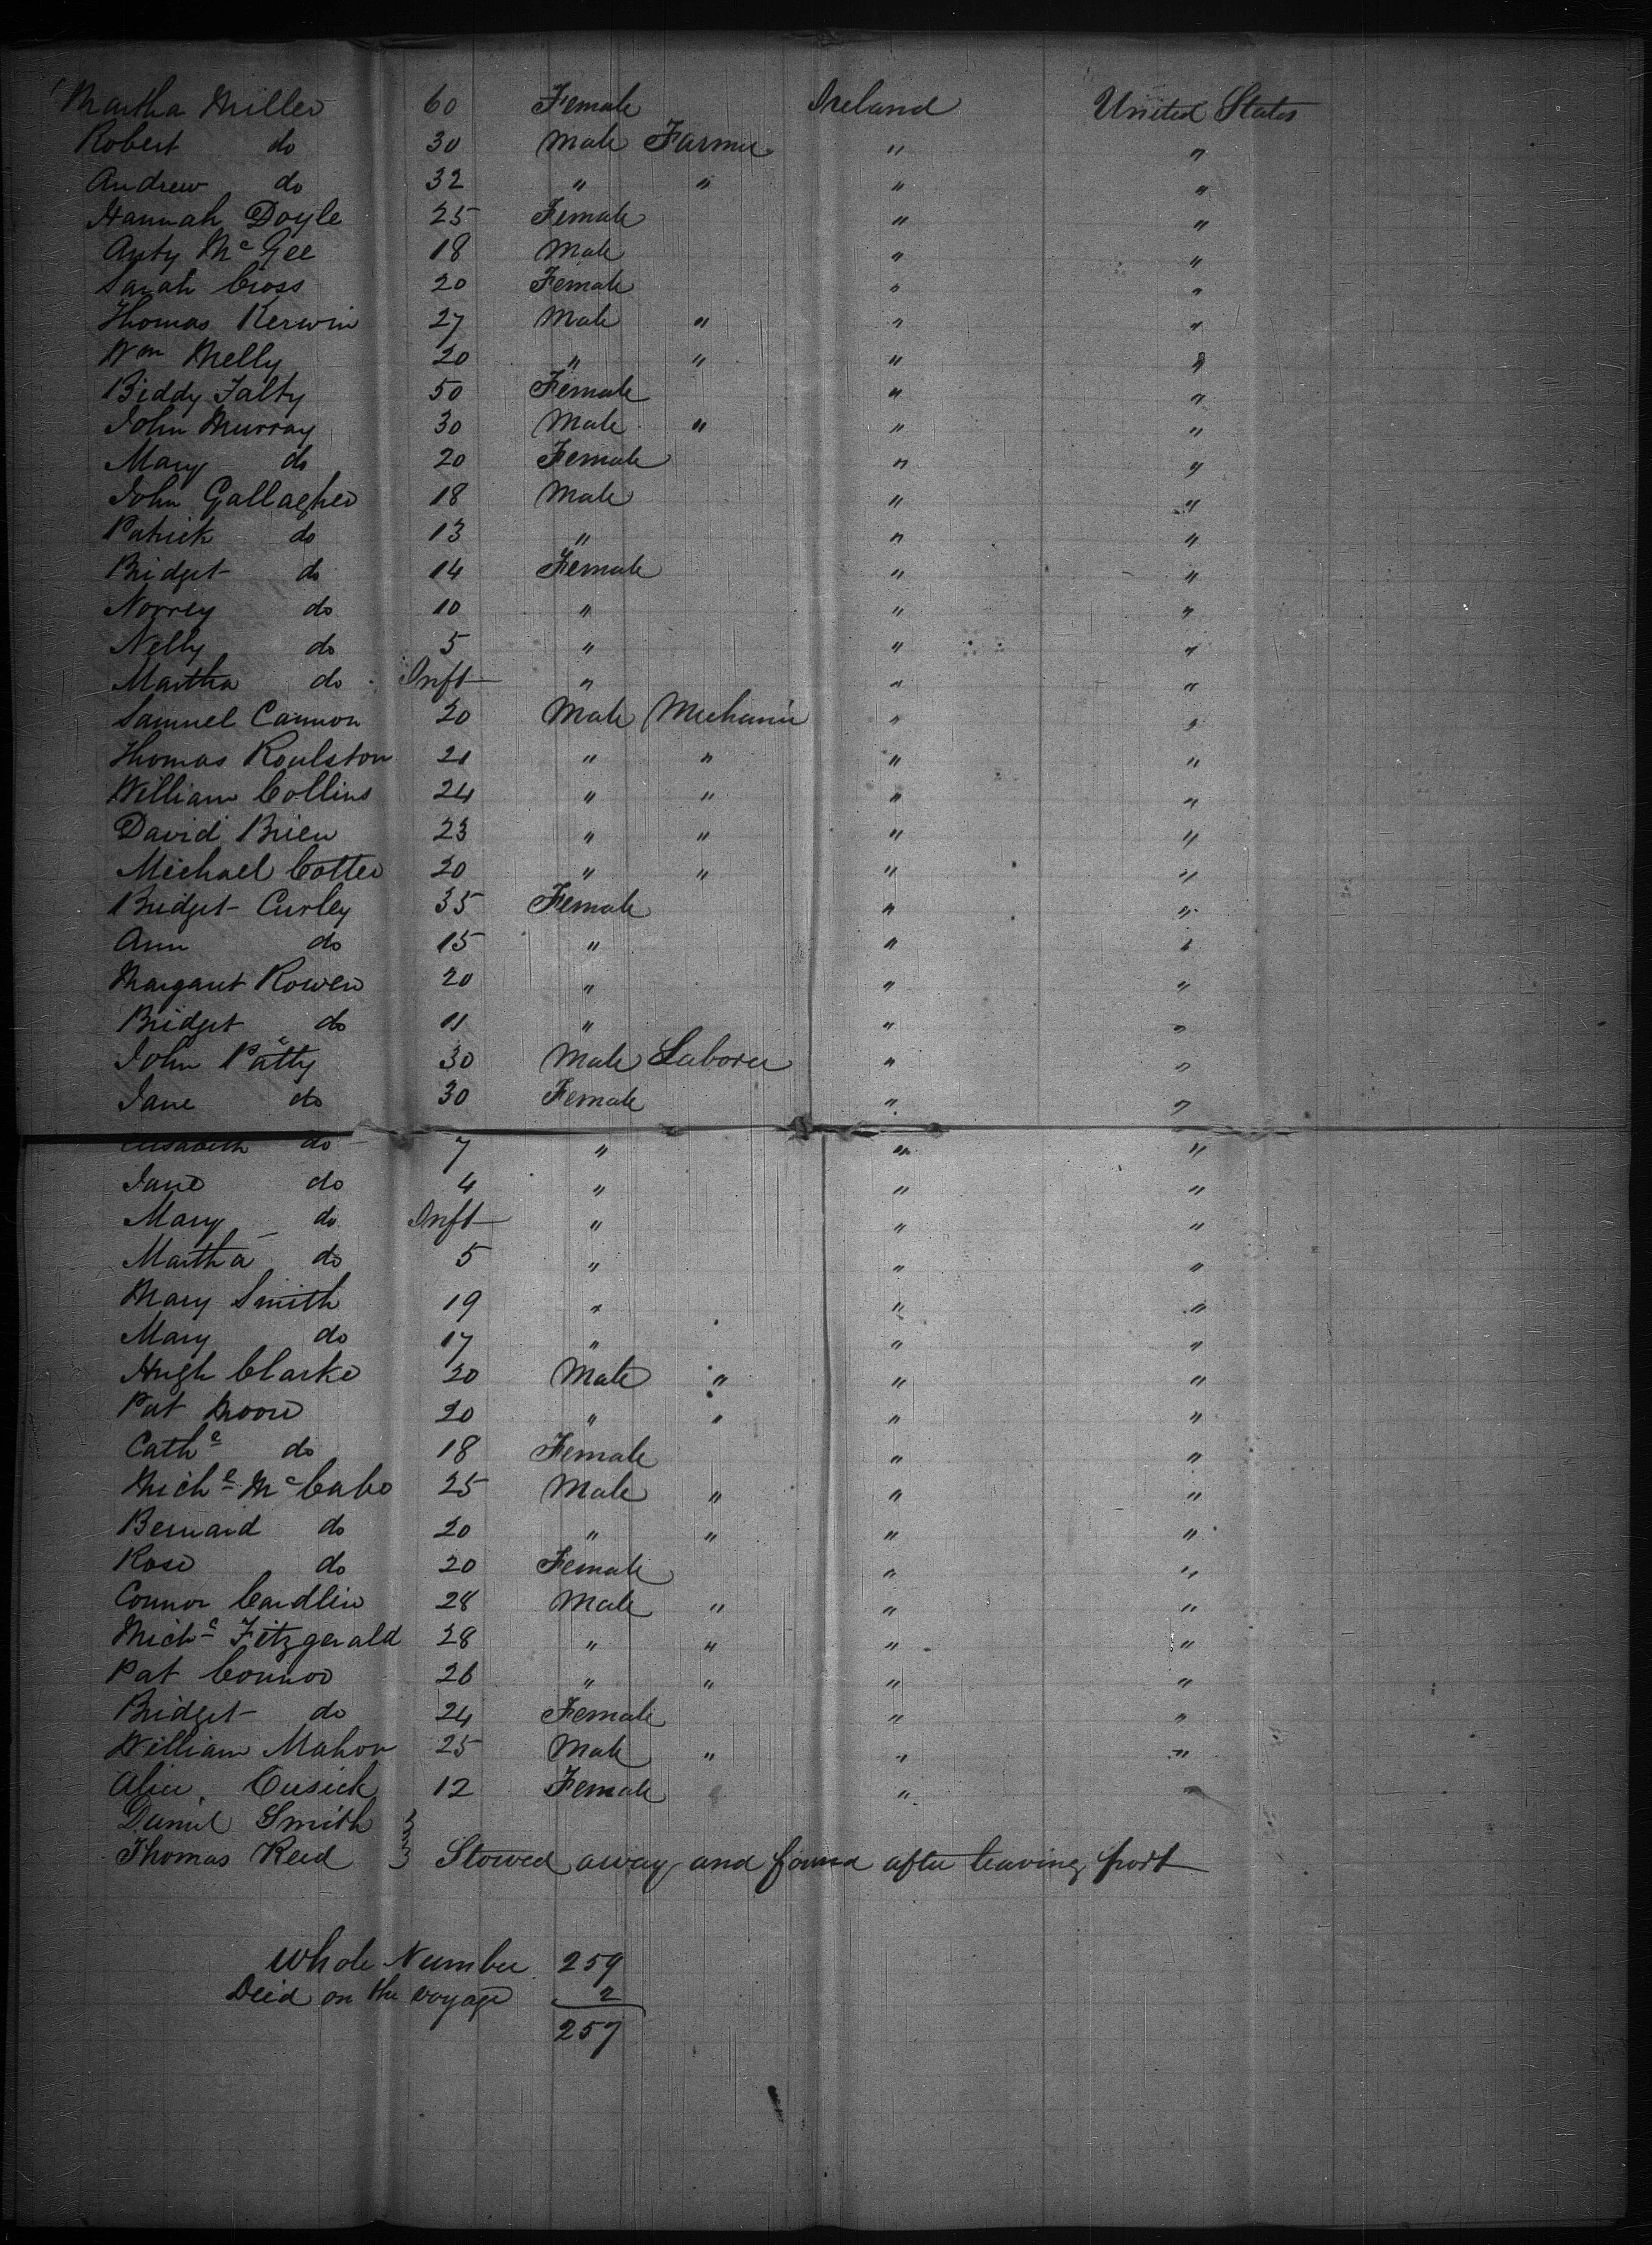 Martha Miller 60 Female Ireland United States
Robert do 30 Male Farmer " "
Andrew do 32 " " " "
Hannah Doyle 25 Female " "
Anty McGee 18 Male " "
Sarah Cross 20 Female " "
Thomas Kerwin 27 Male " " "
Wm Melly 20 " " " "
Biddy Falty 50 Female " "
John Murray 30 Male " " "
Mary do 20 Female " "
John Gallagher 18 Male " "
Patrick do 13 " " "
Bridget do 14 Female " "
Norrey do 10 " " "
Nelly do 5 " " "
Martha do Inft " " "
Samuel Cannon 20 Male Mechanic " "
Thomas Roulston 21 " " " "
William Collins 24 " " " "
David Brien 23 " " " "
Michael Cotter 20 " " " "
Bridget Curley 35 Female " "
Ann do 15 " " "
Margaret Rowen 20 " " "
Bridget do 11 " " "
John 30 Male Laborer " "
Jane do 30 Female " "
Elisabeth do 7 " " "
Jane do 4 " " "
Mary do Inft " " "
Martha do 5 " " "
Mary Smith 19 " " "
Mary do 17 " " "
Hugh Clarke 20 Male " " "
Pat Moore 20 " " " "
Cathe do 18 Female " "
Miche McCabe 25 Male " " "
Bernard do 20 " " " "
Rose do 20 Female " "
Connor Candlin 28 Male " " "
Miche Fitzgerald 28 " " " "
Pat Connor 26 " " " "
Bridget do 24 Female " "
William Mahon 25 Male " " "
Alice Cusick 12 Female " "
Daniel Smith
Thomas Reed Stowed away and found after leaving port
Whole Number 259
Died on the voyage 2
257